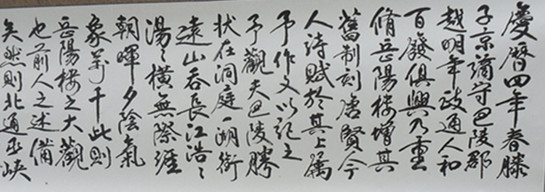 慶曆四年春滕
子京謫守巴陵郡
越明年政通人和
百廢俱興乃重
脩岳陽樓增其
舊制刻唐賢今
人詩賦於其上屬
予作文以記之
予觀夫巴陵勝
狀在洞庭一湖銜
遠山吞長江浩〻
湯〻橫無際涯
朝暉夕陰氣
象萬千此則
岳陽樓之大觀
也前人之述備
矣然則北通巫峽